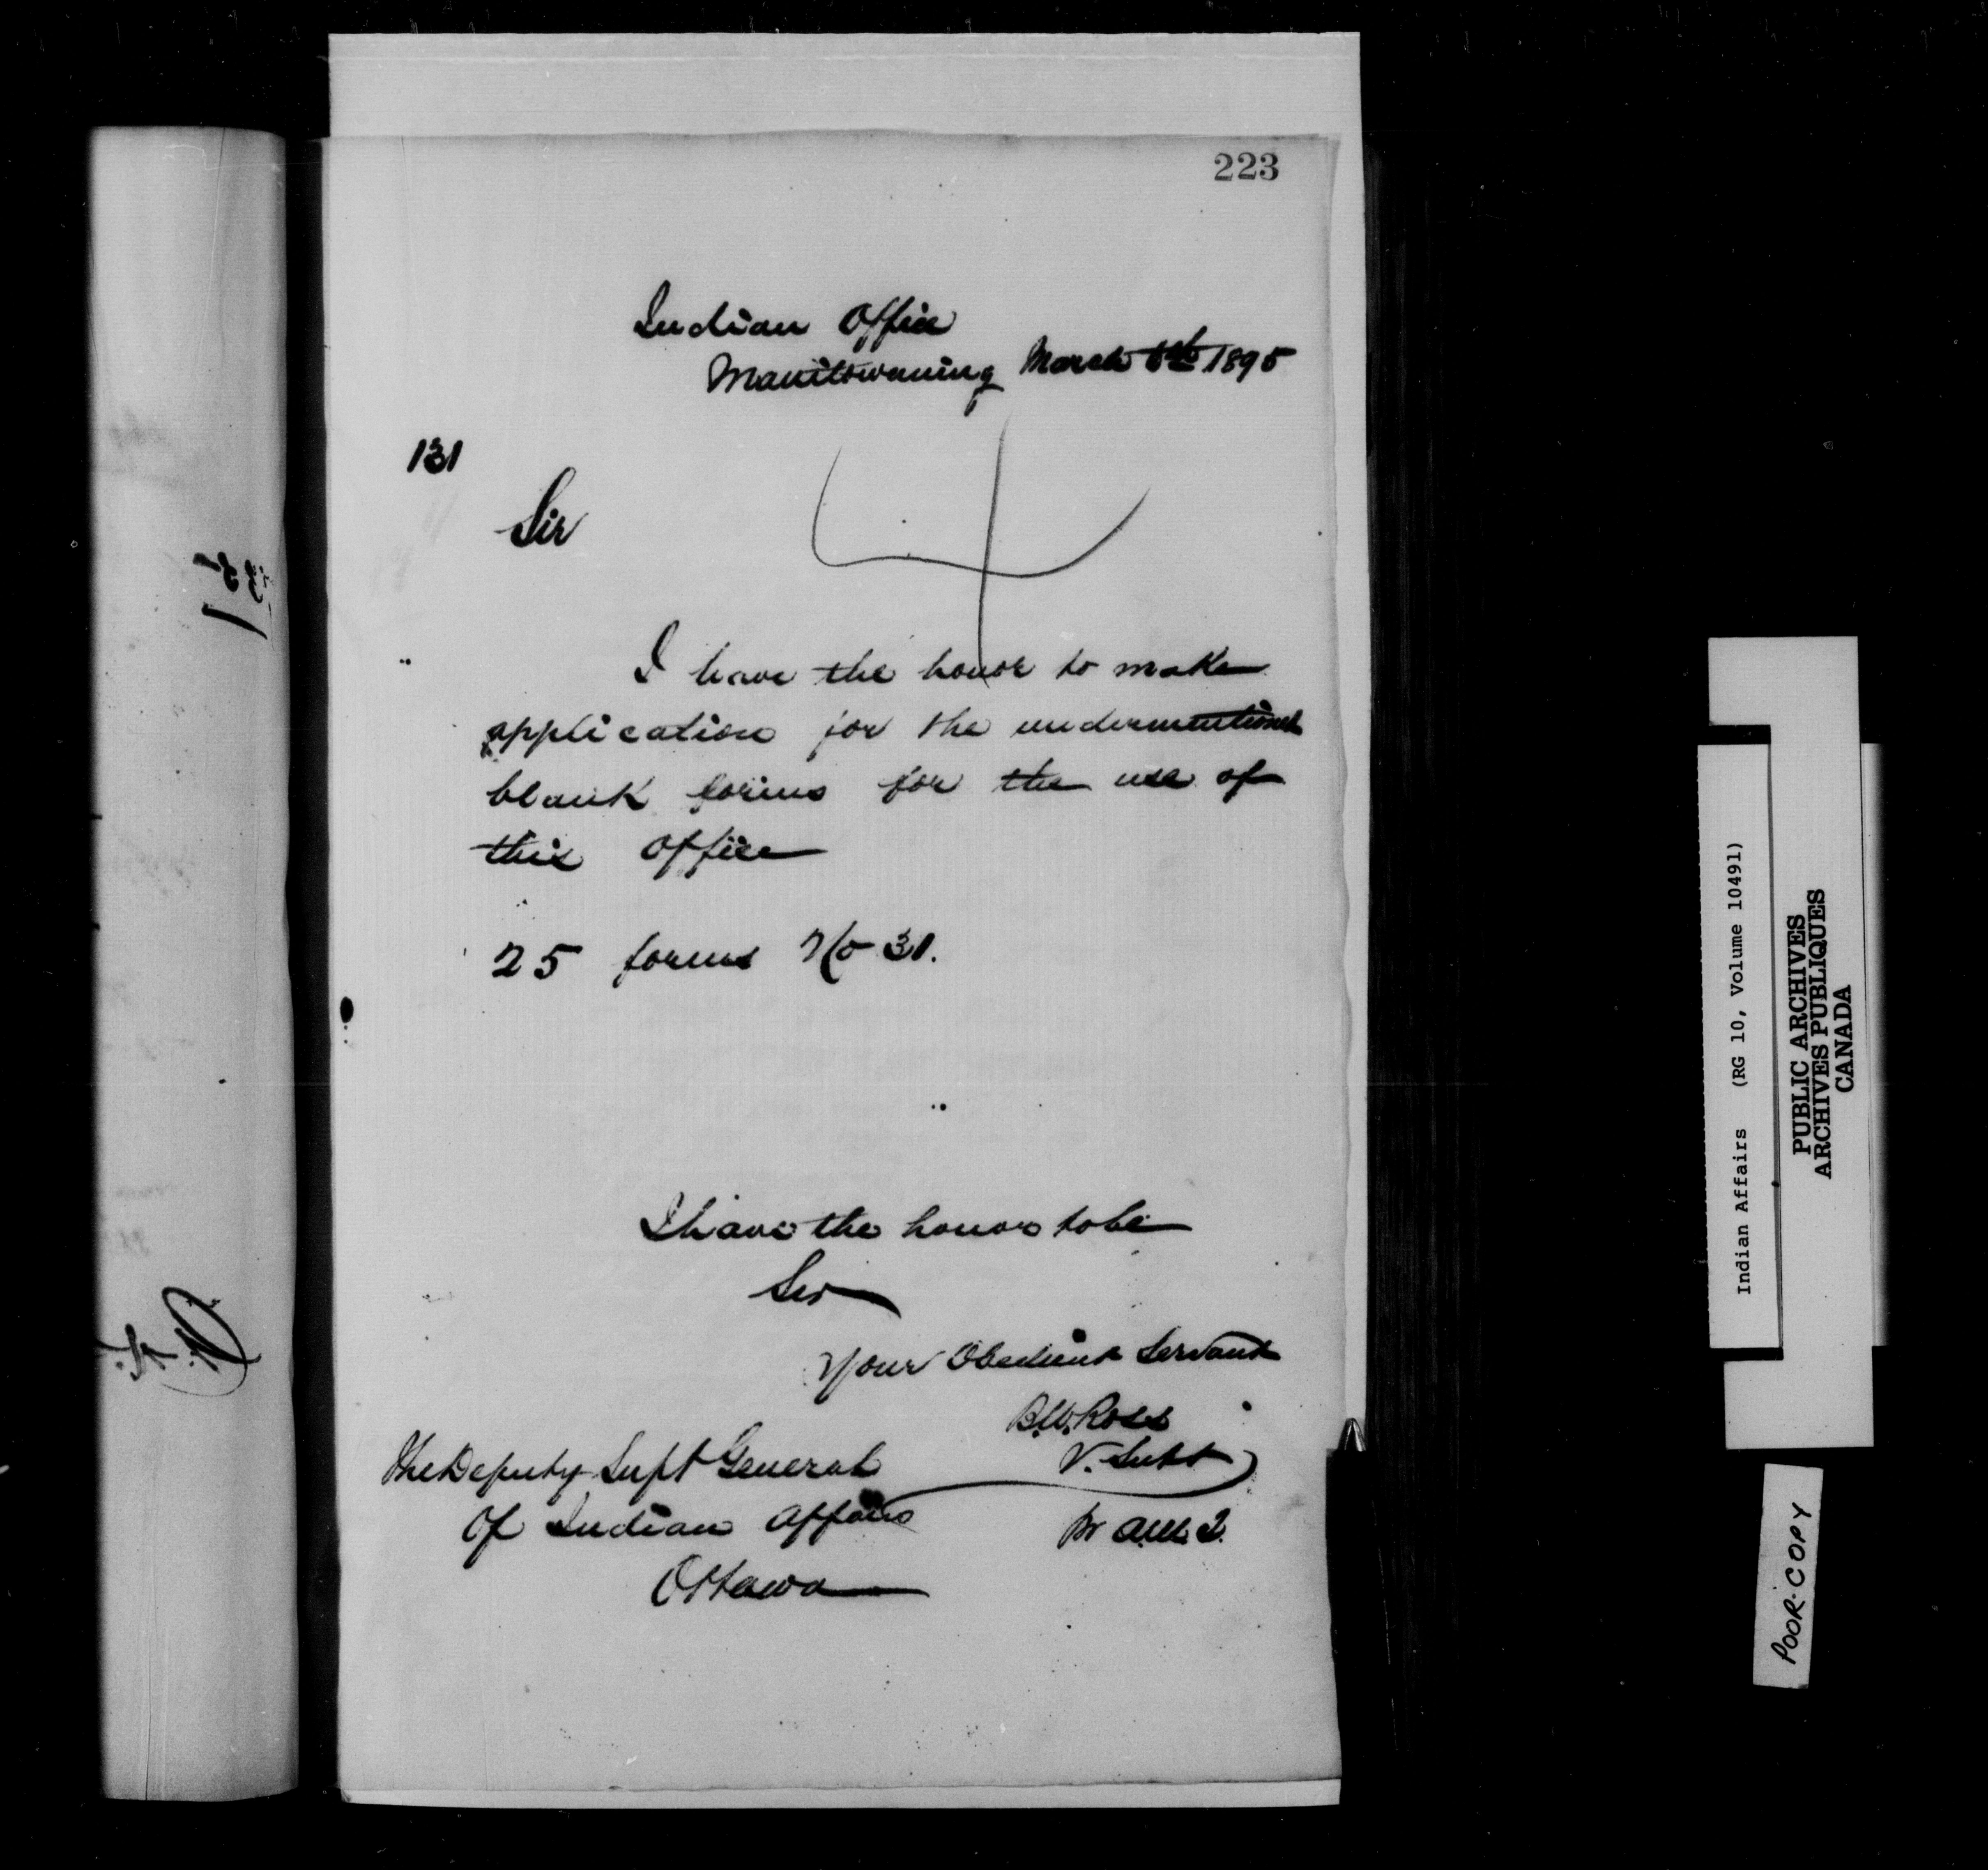 223
Indian Office
Manitowaning March 6th 1895
131
Sir
I have the honor to make
application for the undermentioned
blank forms for the use of
this office
25 forms No 31.
I have the honor to be
Sir
Your Obedient Servant
B.W. Ross
V. Supt
The Deputy Supt General
Of Indian Affairs
Ottawa
Indian Affairs (RG 10, Volume 10491)
PUBLIC ARCHIVES
ARCHIVES PUBLIQUES
CANADA
POOR-COPY